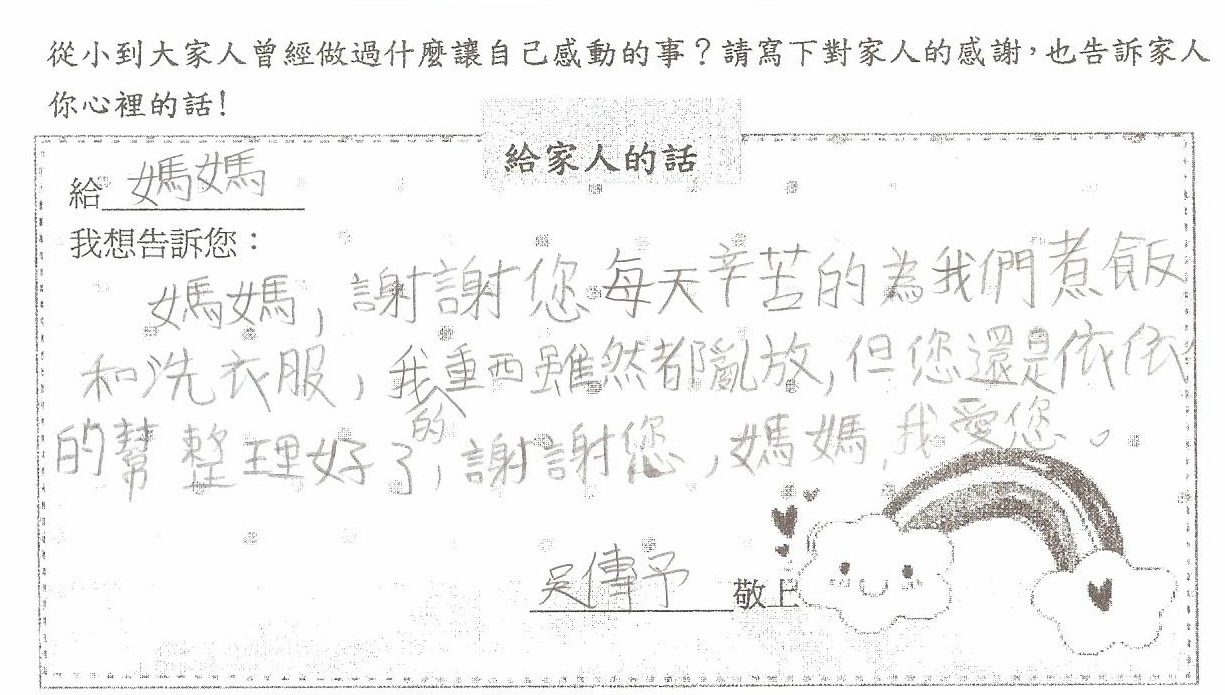 從小到大家人曾經做過什麼讓自己感動的事？請寫下對家人的感謝，也告訴家人
你心裡的話！
給家人的話
給 媽媽
我想告訴您：
媽媽，謝謝您每天辛苦的為我們煮飯
和洗衣服，我的重西雖然都亂放，但您還是依依
的幫整理好了，謝謝您，媽媽，我愛您。
吳傳予 敬上